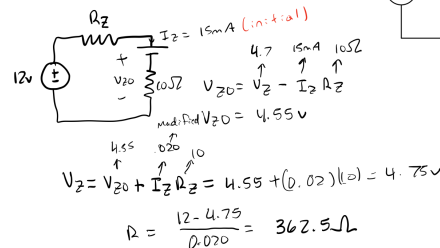 R_Z
I_Z = 15mA (initial)
12v
+
V_Z0
-
10Ω
4.7 15mA 10Ω
V_Z0 = V_Z - I_Z R_Z
modified V_Z0 = 4.55v
4.55 .020 10
V_Z = V_Z0 + I_Z R_Z = 4.55 + (0.02)(10) = 4.75v
R = 12 - 4.75 / 0.020 = 362.5Ω